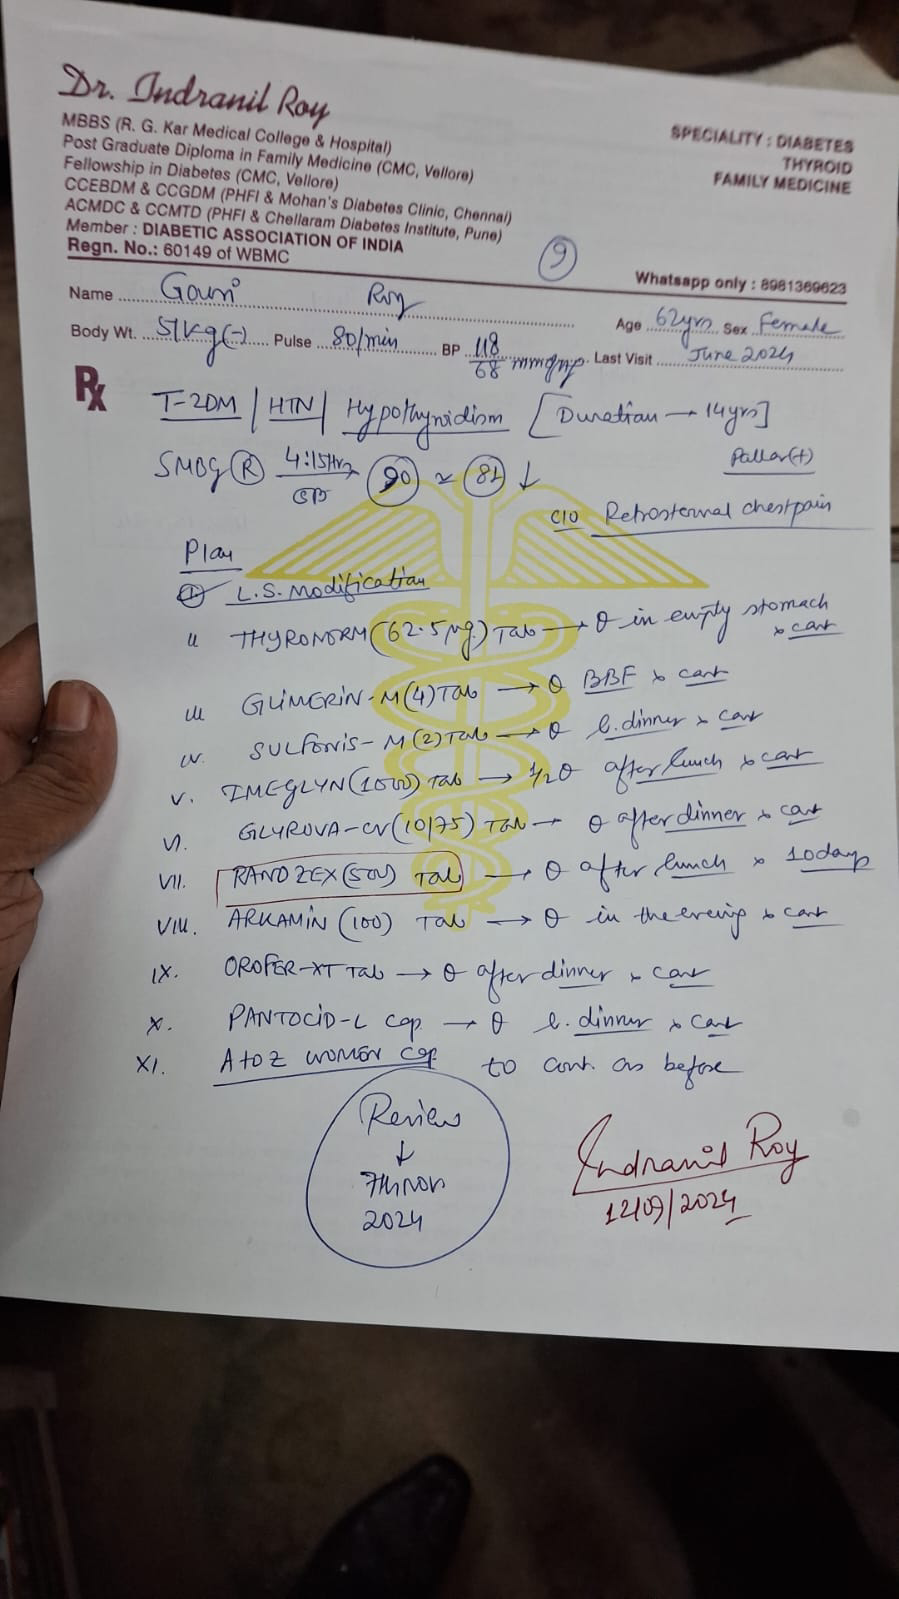 Dr. Indranil Roy
MBBS (R. G. Kar Medical College & Hospital)
Post Graduate Diploma in Family Medicine (CMC, Vellore)
Fellowship in Diabetes (CMC, Vellore)
CCEBDM & CCGDM (PHFI & Mohan's Diabetes Clinic, Chennai)
ACMDC & CCMTD (PHFI & Chellaram Diabetes Institute, Pune)
Member : DIABETIC ASSOCIATION OF INDIA
Regn. No.: 60149 of WBMC
SPECIALITY : DIABETES
THYROID
FAMILY MEDICINE
9
Whatsapp only : 8981369623
Name Gouri Roy
Age 62yrs Sex Female
Body Wt. 51kg(-) Pulse 80/min BP 118/68 mmHg Last Visit June 2024
Rx
T-2DM | HTN | Hypothyroidism [Duration → 14yrs]
SMBG (R) 4:15Hrs 90 81 ↓
Pallor(+)
C/O Retrosternal chestpain
Plan
L.S. Modification
II THYRONORM (62.5µg) Tab → in empty stomach x cont
III GLIMERIN-M(4) Tab → BBF x cont
IV. SULFONIS-M(2) Tab → b. dinner x cont
V. IMEGLYN(1000) Tab → 1/2 after lunch x cont
VI. GLYROVA-CV(10/75) Tab → after dinner x cont
VII. RANOZEX(500) Tab → after lunch x 10days
VIII. ARKAMIN (100) Tab → in the evening x cont
IX. OROFER-XT Tab → after dinner x cont
X. PANTOCID-L cap → b. dinner x cont
XI. A to Z WOMEN cap to cont. as before
Review
↓
7th Nov
2024
Indranil Roy
12/09/2024